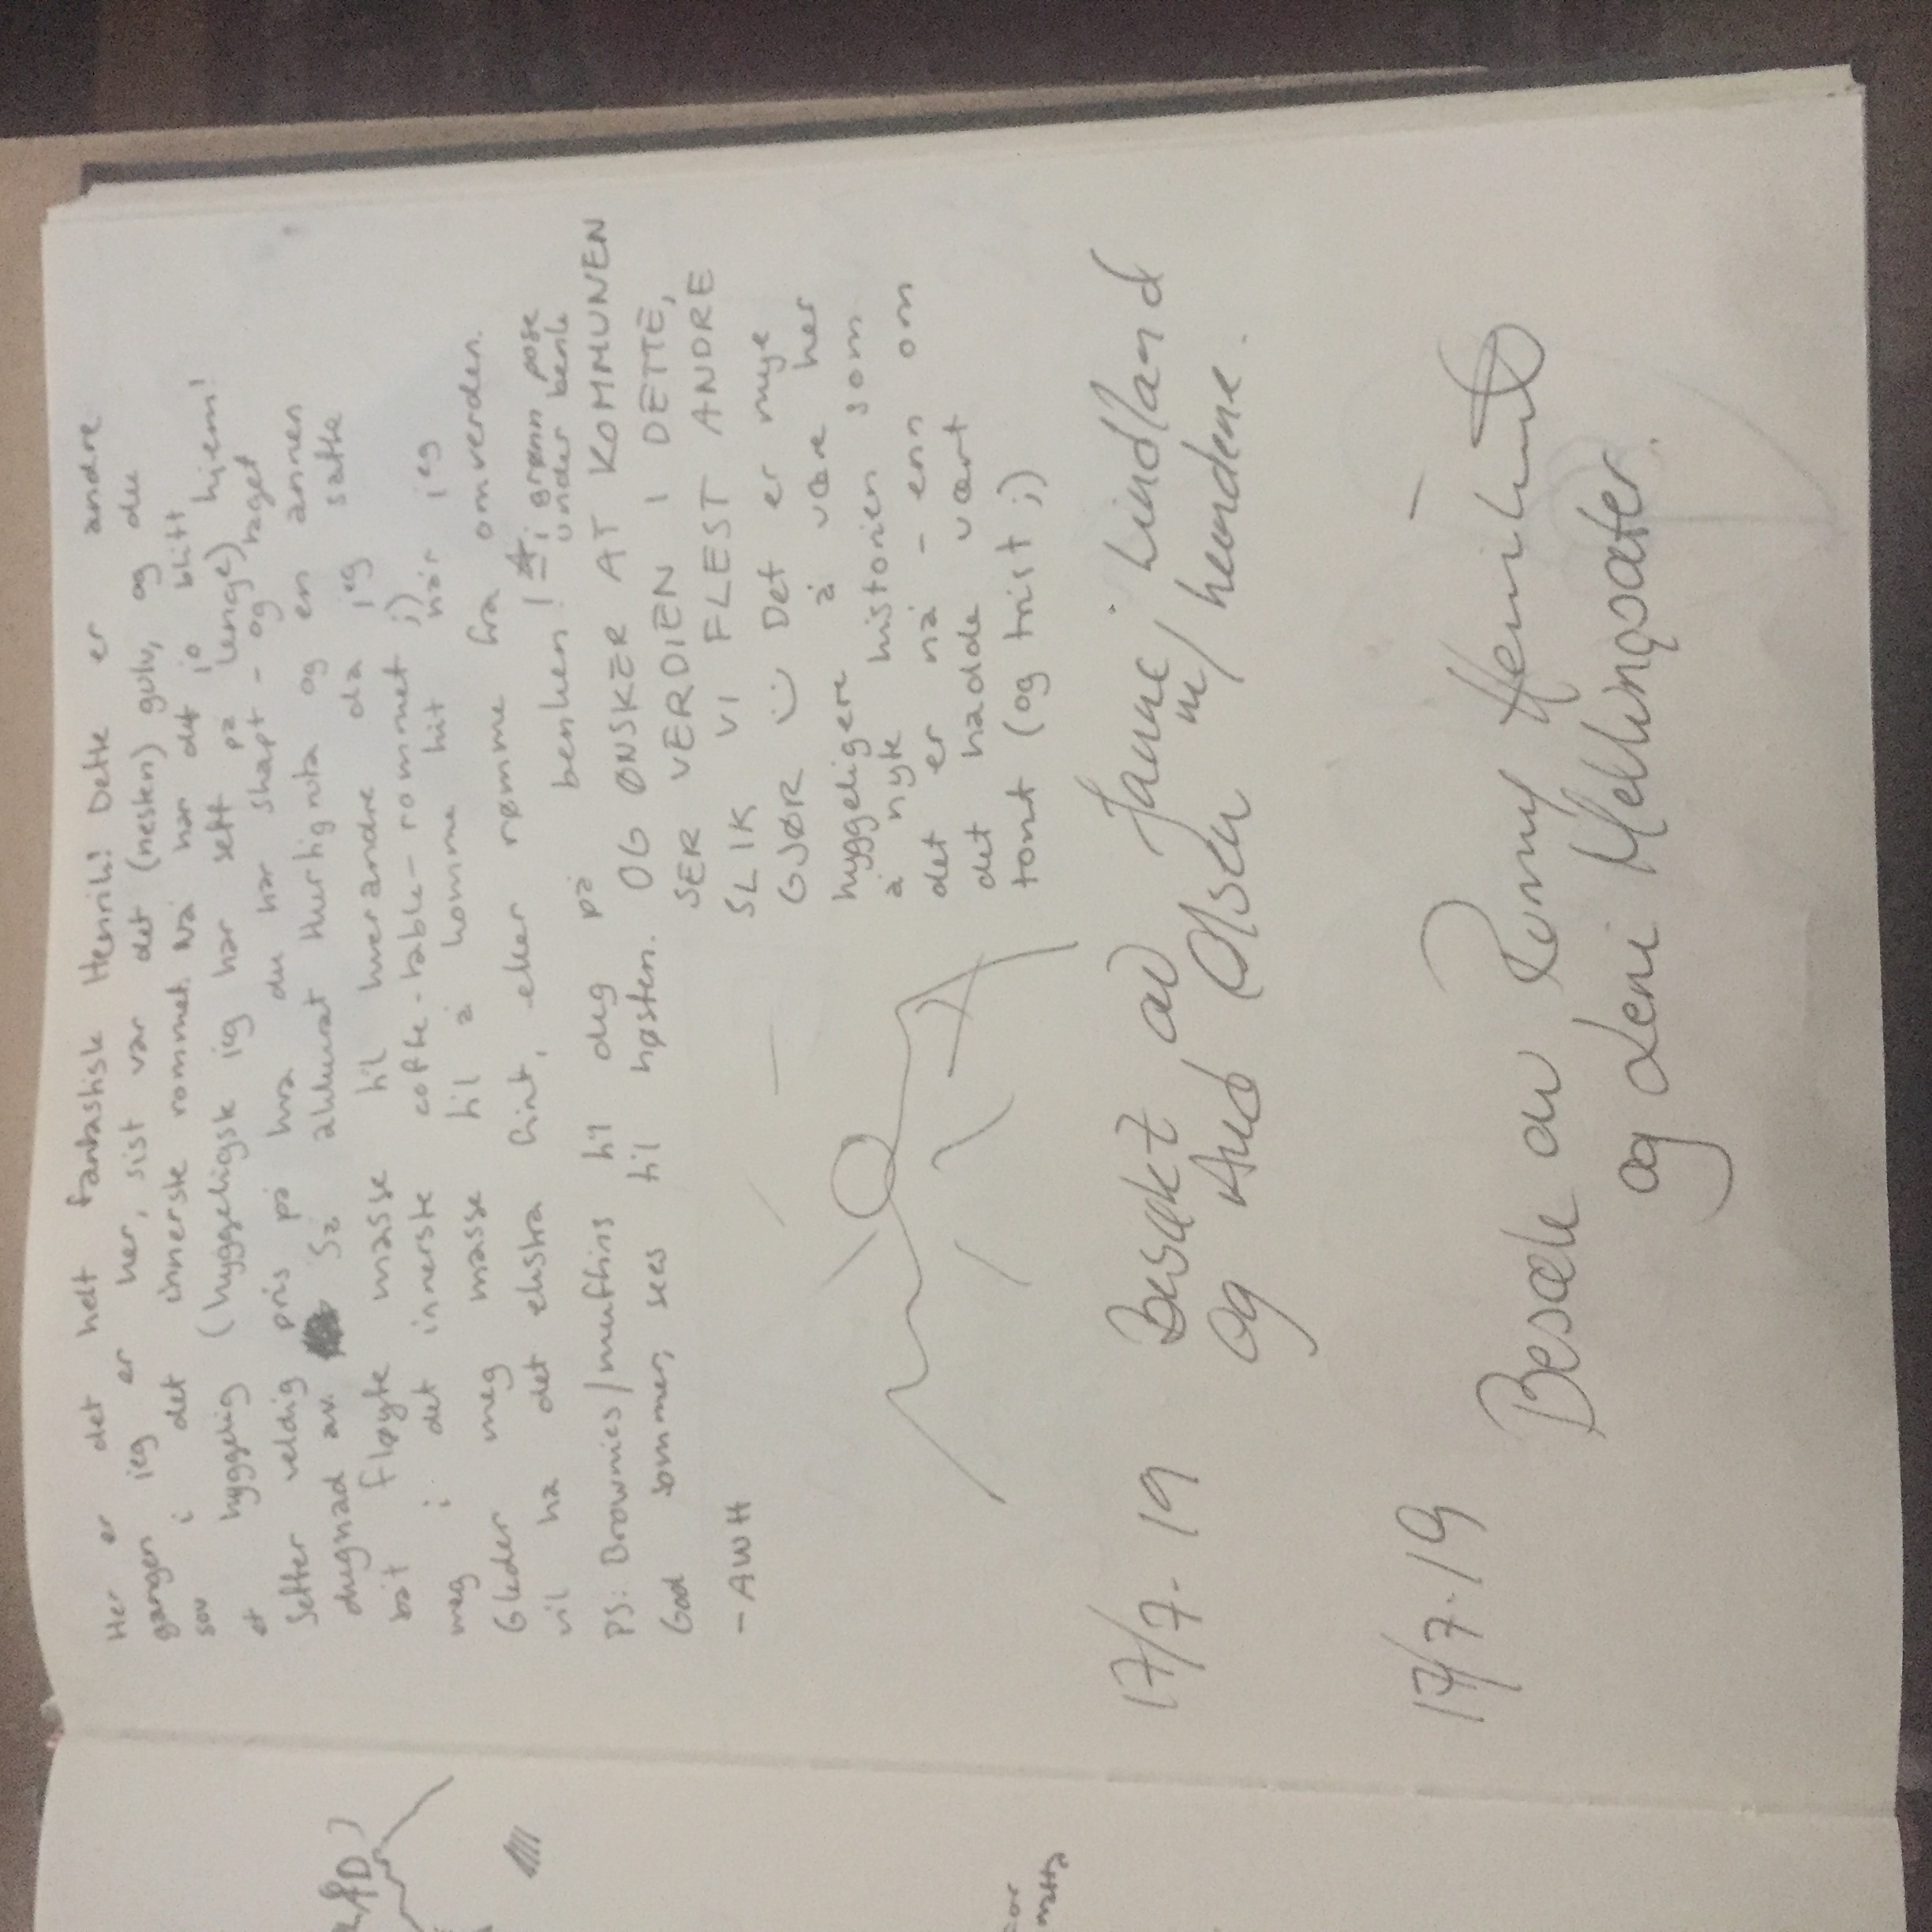 Her er det helt fantastisk Henrik! Dette er andre
gangen jeg er her, sist var det (nesten) gulv, og du
sov i det innerste rommet. Nå har det jo blitt
et hyggelig (hyggeligste jeg har sett på lenge) hjem!
Setter veldig pris på hva du har skapt - og laget
dugnad av. Så akkurat Hurtigruta og en annen
båt fløyte masse til hverandre da jeg satte
meg i det innerste coffe-table-rommet ;)
Gleder meg masse til å komme hit når jeg
vil ha det ekstra fint, eller rømme fra omverden.
PS: Brownies/muffins til deg på benken! I grønn pose
under benk
God sommer, sees til høsten.
OG ØNSKER AT KOMMUNEN
SER VERDIEN I DETTE,
SLIK VI FLEST ANDRE
GJØR :) Det er mye
hyggeligere å være her
å nyte historien som
det er nå - enn om
det hadde vært
tomt (og trist ;)
- AWH
17/7-19 Besøkt av Janne Lindland
og Aud Olsen m/ hundene.
17/7-19 Besøk av Ronny
og Leni Mellingsæter.